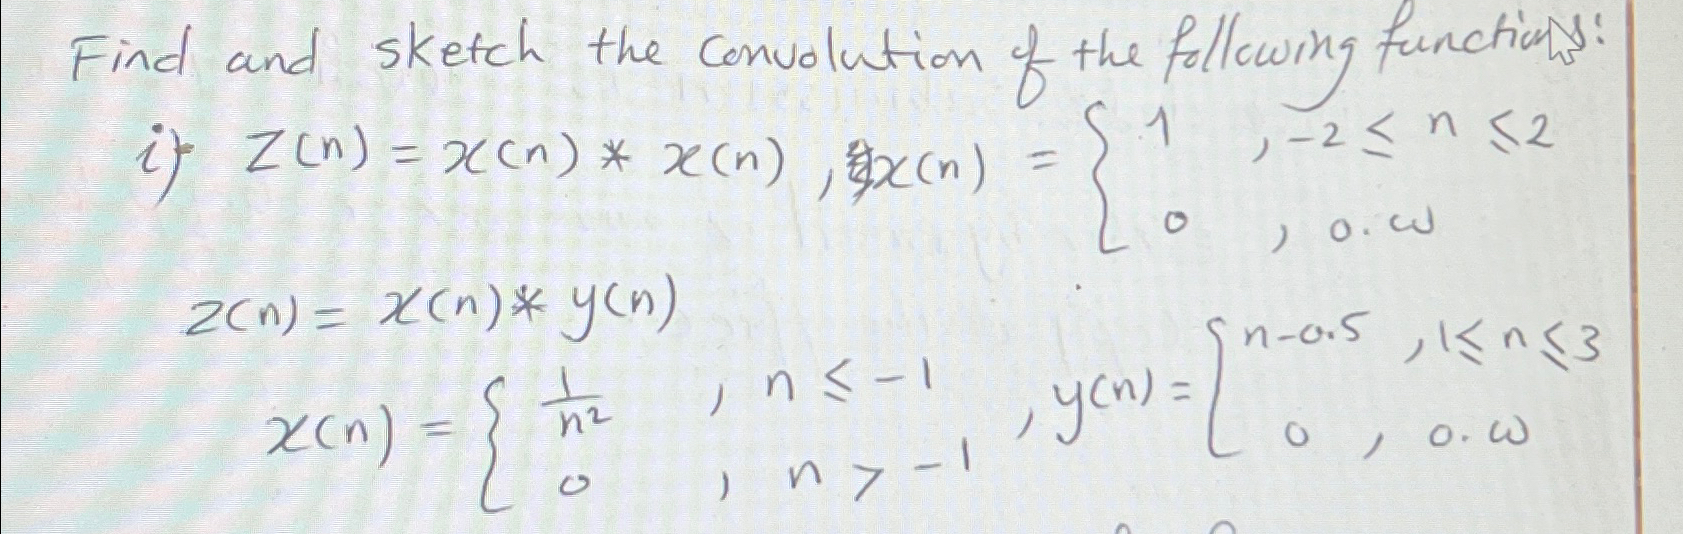 Find and sketch the convolution of the following functions:
i) z(n) = x(n) * x(n) , x(n) = { 1 , -2 ≤ n ≤ 2
0 , o.w
z(n) = x(n) * y(n)
x(n) = { 1/n² , n ≤ -1 , y(n) = { n-0.5 , 1 ≤ n ≤ 3
0 , n > -1 0 , o.w